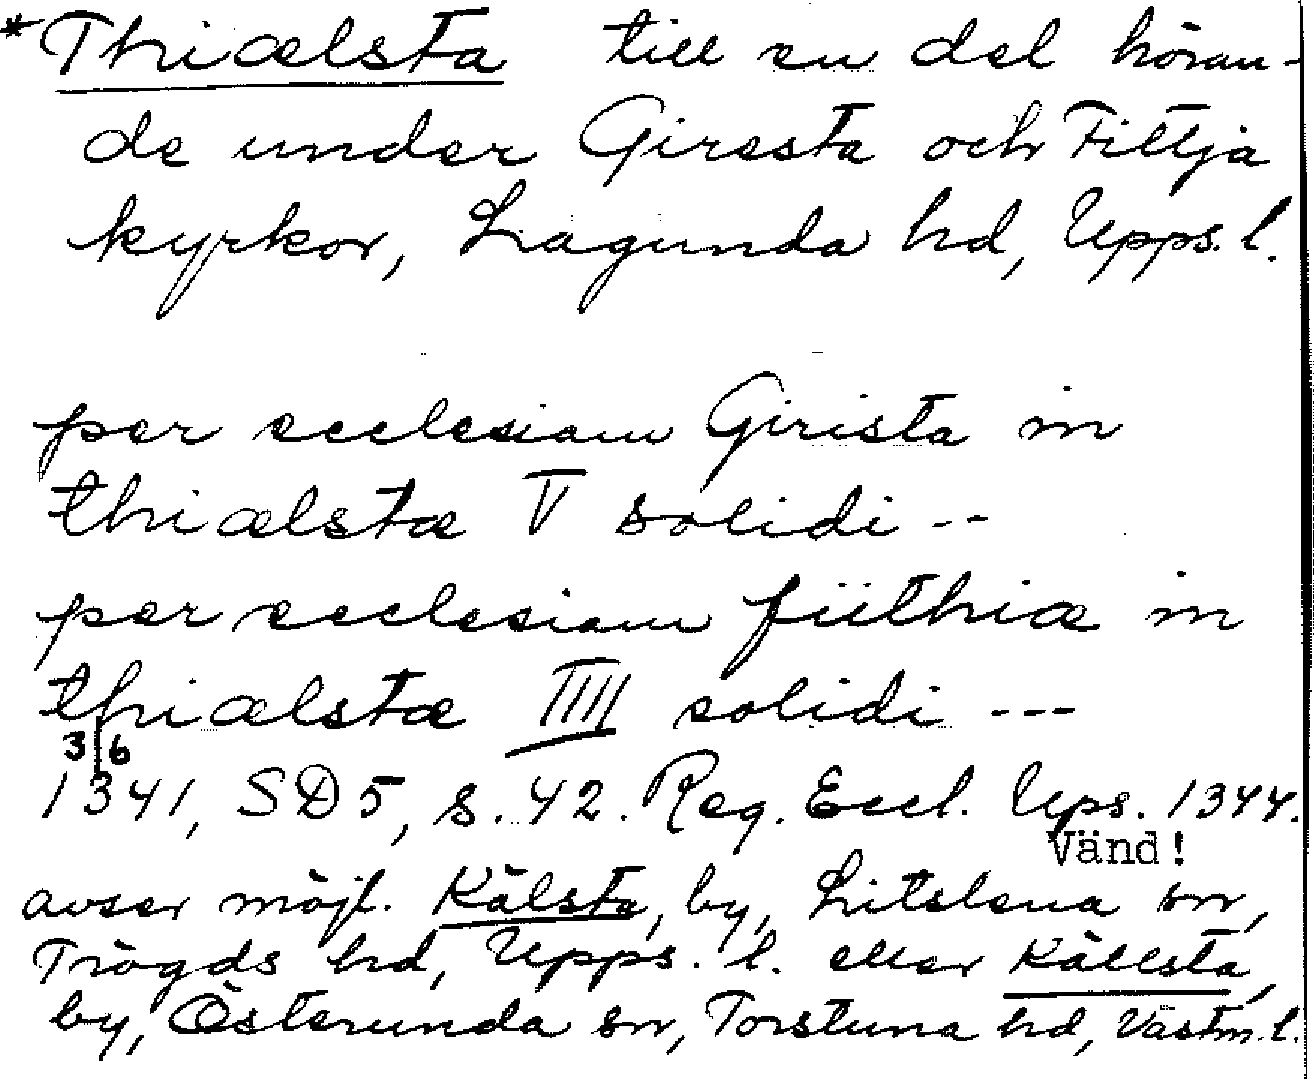 *Thiælsta till en del höran-
de under Giresta och Fittja
kyrkor, Lagunda hd, Upps. l.
per ecclesiam Girista in
thiælstæ V solidi --
per ecclesiam fiithiæ in
thiælstæ IIII solidi ---
3/6
1341, SD5, s. 42. Reg. Eccl. Ups. 1344.
Vänd!
avser möjl. Kälsta, by, Litslena sn,
Trögds hd, Upps. l. eller Källsta,
by, Österunda sn, Torstuna hd, Västm. l.